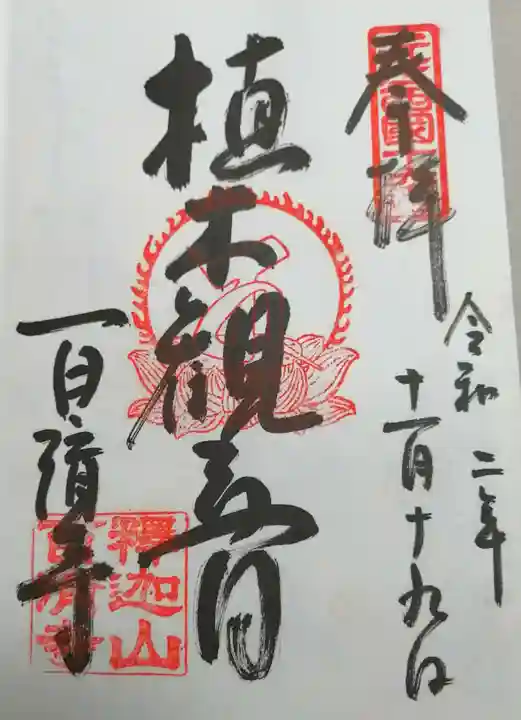 奉拝
令和二年
十一月十九日
植木觀音
百済寺
釋迦山